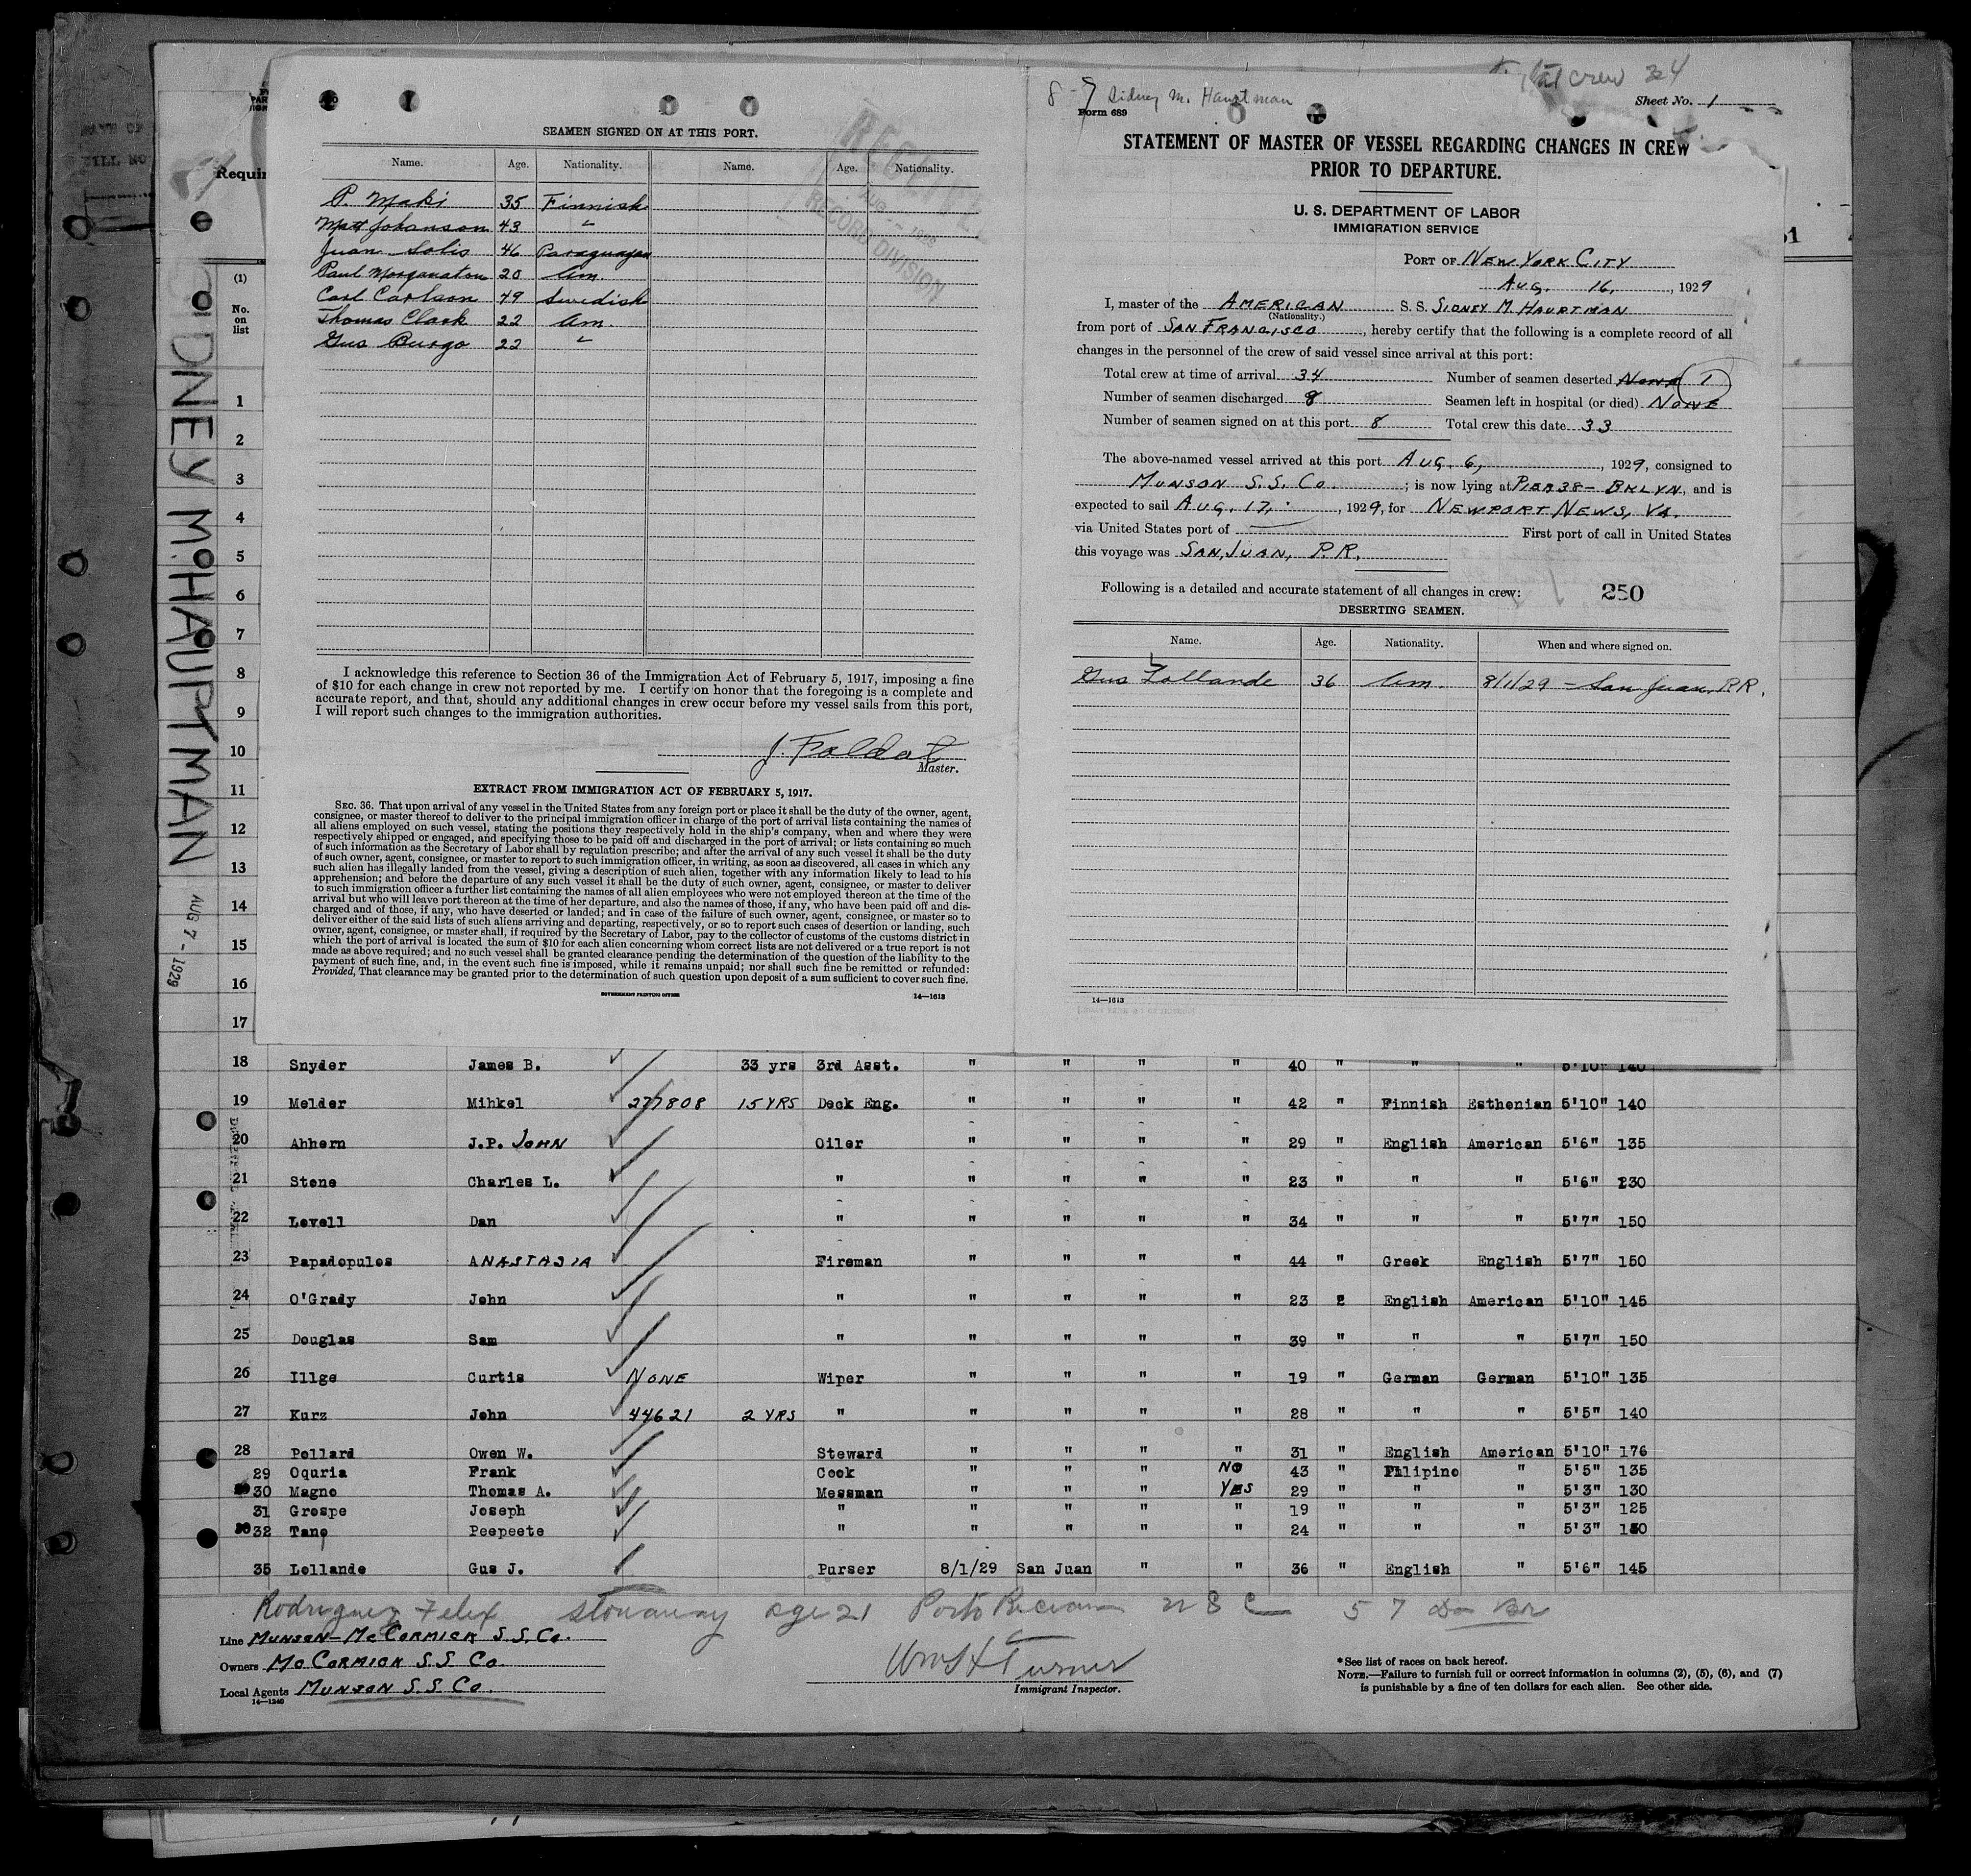 SEAMEN SIGNED ON AT THIS PORT.
Name. Age. Nationality. Name. Age. Nationality.
P. Maki 35 Finnish
Matt Johanson 43 "
Juan Solis 46 Paraguayan
Paul 20 Am.
Carl Carlson 49 Swedish
Thomas Clark 22 Am.
Gus Burgo 22 "
I acknowledge this reference to Section 36 of the Immigration Act of February 5, 1917, imposing a fine
of $10 for each change in crew not reported by me. I certify on honor that the foregoing is a complete and
accurate report, and that, should any additional changes in crew occur before my vessel sails from this port,
I will report such changes to the immigration authorities.
Master.
EXTRACT FROM IMMIGRATION ACT OF FEBRUARY 5, 1917.
SEC. 36. That upon arrival of any vessel in the United States from any foreign port or place it shall be the duty of the owner, agent,
consignee, or master thereof to deliver to the principal immigration officer in charge of the port of arrival lists containing the names of
all aliens employed on such vessel, stating the positions they respectively hold in the ship's company, when and where they were
respectively shipped or engaged, and specifying those to be paid off and discharged in the port of arrival; or lists containing so much
of such information as the Secretary of Labor shall by regulation prescribe; and after the arrival of any such vessel it shall be the duty
of such owner, agent, consignee, or master to report to such immigration officer, in writing, as soon as discovered, all cases in which any
such alien has illegally landed from the vessel, giving a description of such alien, together with any information likely to lead to his
apprehension; and before the departure of any such vessel it shall be the duty of such owner, agent, consignee, or master to deliver
to such immigration officer a further list containing the names of all alien employees who were not employed thereon at the time of the
arrival but who will leave port thereon at the time of her departure, and also the names of those, if any, who have been paid off and dis-
charged and of those, if any, who have deserted or landed; and in case of the failure of such owner, agent, consignee, or master so to
deliver either of the said lists of such aliens arriving and departing, respectively, or so to report such cases of desertion or landing, such
owner, agent, consignee, or master shall, if required by the Secretary of Labor, pay to the collector of customs of the customs district in
which the port of arrival is located the sum of $10 for each alien concerning whom correct lists are not delivered or a true report is not
made as above required; and no such vessel shall be granted clearance pending the determination of the question of the liability to the
payment of such fine, and, in the event such fine is imposed, while it remains unpaid; nor shall such fine be remitted or refunded:
Provided, That clearance may be granted prior to the determination of such question upon deposit of a sum sufficient to cover such fine.
GOVERNMENT PRINTING OFFICE 14—1613
RECEIVED
AUG 1929
RECORD DIVISION
Total crew 34
8-7 Sidney M. Hauptman
Sheet No. 1
Form 689
STATEMENT OF MASTER OF VESSEL REGARDING CHANGES IN CREW
PRIOR TO DEPARTURE.
U. S. DEPARTMENT OF LABOR
IMMIGRATION SERVICE
PORT OF NEW YORK CITY
AUG. 16, , 1929
I, master of the AMERICAN S. S. SIDNEY M HAUPTMAN
(Nationality.)
from port of SAN FRANCISCO, hereby certify that the following is a complete record of all
changes in the personnel of the crew of said vessel since arrival at this port:
Total crew at time of arrival 34 Number of seamen deserted None 1
Number of seamen discharged 8 Seamen left in hospital (or died) NONE
Number of seamen signed on at this port 8 Total crew this date 33
The above-named vessel arrived at this port AUG. 6, , 1929, consigned to
MUNSON S.S. Co. ; is now lying at PIER 38 - BKLYN, and is
expected to sail AUG. 17, , 1929, for NEWPORT NEWS, VA.
via United States port of First port of call in United States
this voyage was SAN JUAN, P.R.
Following is a detailed and accurate statement of all changes in crew: 250
DESERTING SEAMEN.
Name. Age. Nationality. When and where signed on.
L
Gus Lollande 36 Am. 8/1/29 - San Juan, P.R.
14—1613
Requir
(1)
No.
on
list
SIDNEY M. HAUPTMAN
AUG 7 - 1929
1
2
3
4
5
6
7
8
9
10
11
12
13
14
15
16
17
18 Snyder James B. 33 yrs 3rd Asst. " " " " 40 " " " 5'10" 140
19 Melder Mihkel 277808 15 YRS Deck Eng. " " " " 42 " Finnish Esthenian 5'10" 140
20 Ahhern J.P. JOHN Oiler " " " " 29 " English American 5'6" 135
21 Stone Charles L. " " " " " 23 " " " 5'6" 230
22 Lovell Dan " " " " " 34 " " " 5'7" 150
23 Papadopulos ANASTASIA Fireman " " " " 44 " Greek English 5'7" 150
24 O'Grady John " " " " " 23 2 English American 5'10" 145
25 Douglas Sam " " " " " 39 " " " 5'7" 150
26 Illge Curtis NONE Wiper " " " " 19 " German German 5'10" 135
27 Kurz John 44621 2 YRS " " " " " 28 " " " 5'5" 140
28 Pollard Owen W. Steward " " " " 31 " English American 5'10" 176
29 Oquria Frank Cook " " " NO 43 " Filipino " 5'5" 135
30 Magno Thomas A. Messman " " " YES 29 " " " 5'3" 130
31 Grospe Joseph " " " " " 19 " " " 5'3" 125
32 Tano Peepeete " " " " " 24 " " " 5'3" 130
35 Lollande Gus J. Purser 8/1/29 San Juan " " 36 " English " 5'6" 145
Rodriguez Felix stowaway age 21 Porto Rican U S C 5 7
Line MUNSON-McCORMICK S.S. Co.
Owners McCORMICK S.S. Co.
Local Agents MUNSON S.S. Co.
14—1240
Wm H Turner
Immigrant Inspector.
*See list of races on back hereof.
NOTE.—Failure to furnish full or correct information in columns (2), (5), (6), and (7)
is punishable by a fine of ten dollars for each alien. See other side.